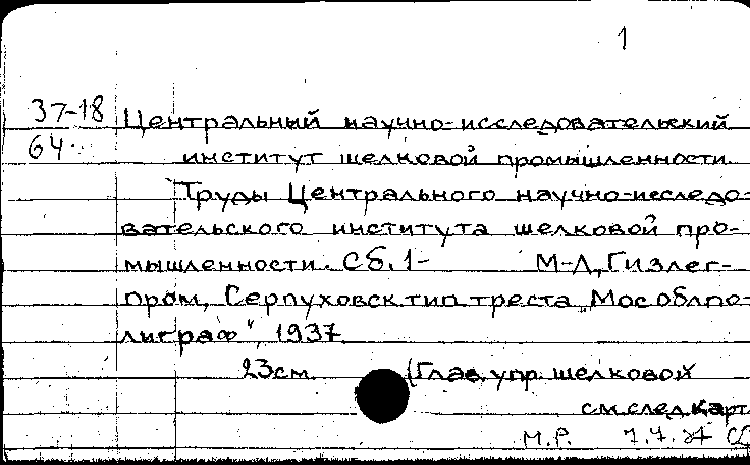 1
37-18 Центральный научно-исследовательский
64 институт шелковой промышленности
Труды Центрального научно-исследо-
вательского института шелковой про-
мышленности. Сб. 1- М-Л, Гизлег-
пром, Серпуховск. тип. треста „Мособлпо-
лиграф", 1937.
23см. (Глав. упр. шелковой
см. след. карт.
М.Р.